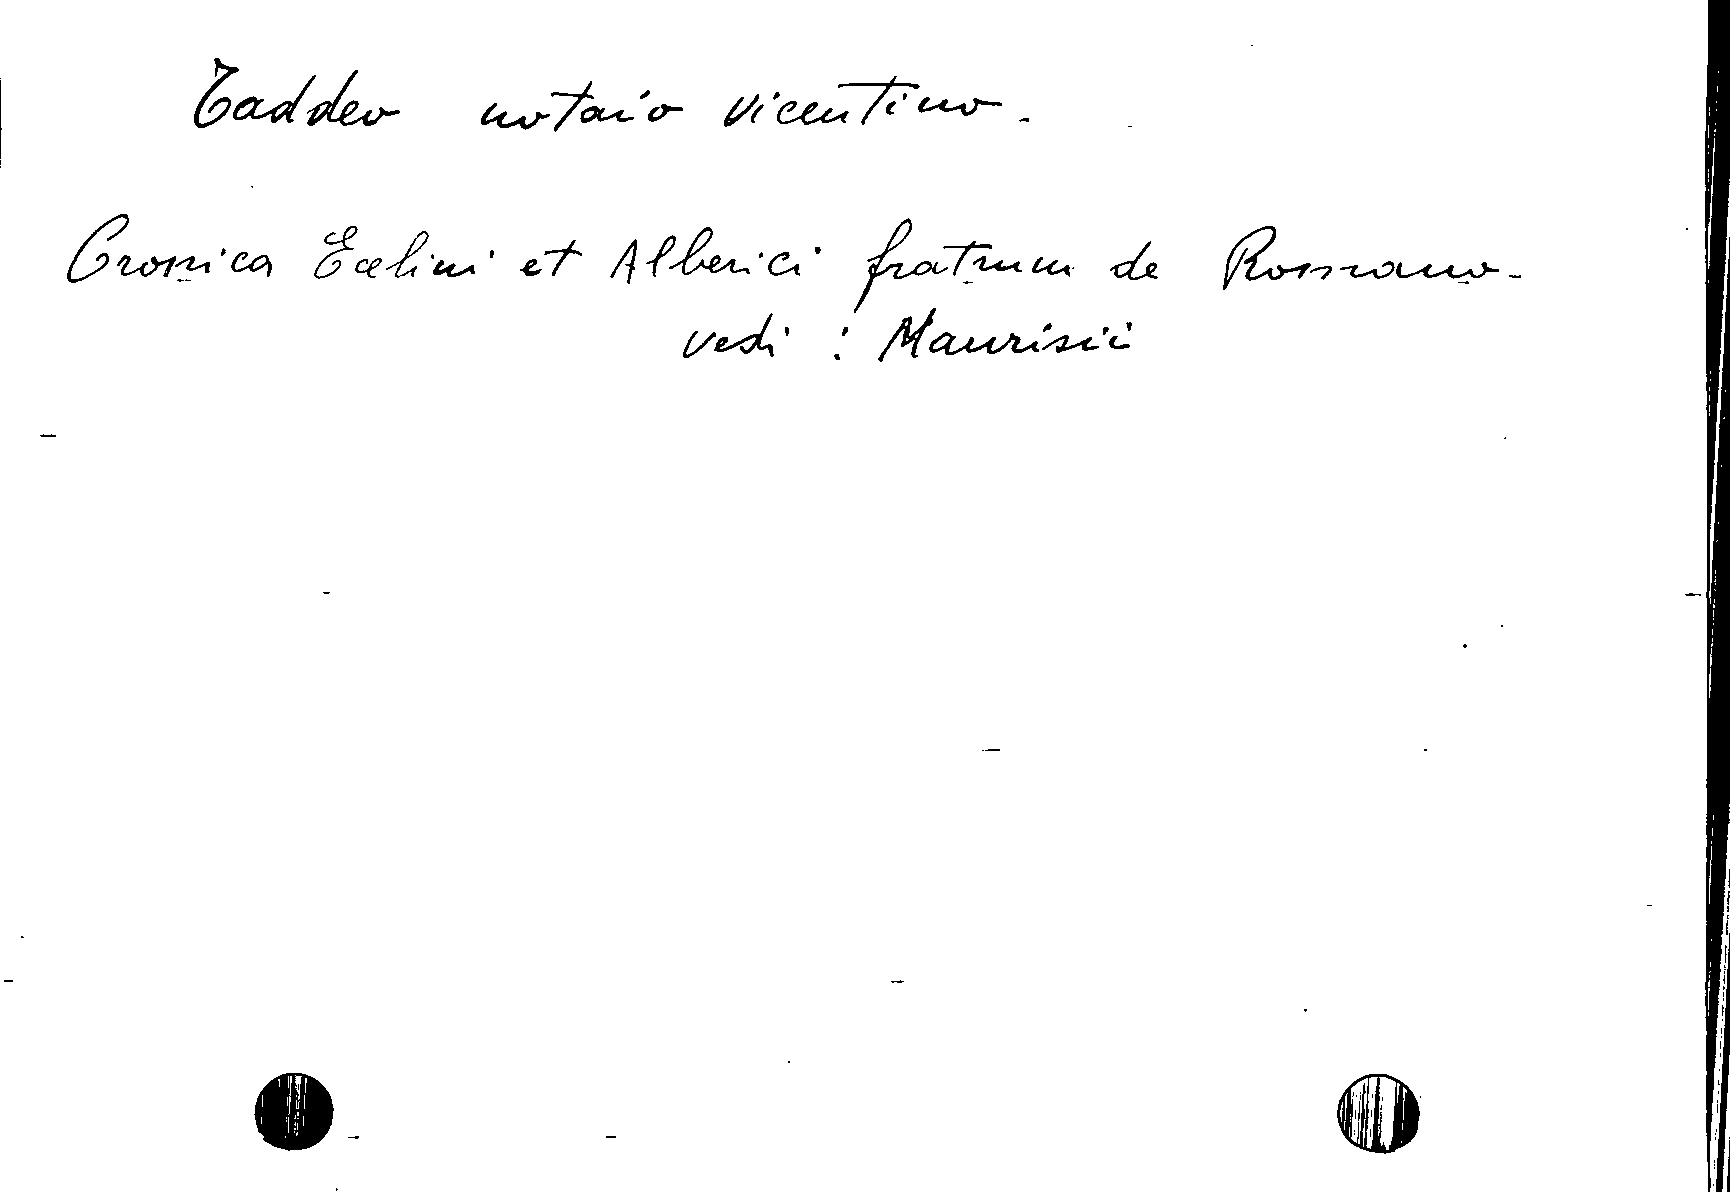 Taddeo notaio vicentino.
Cronica Ecelini et Alberici fratrum de Romano.
vedi : Maurisii